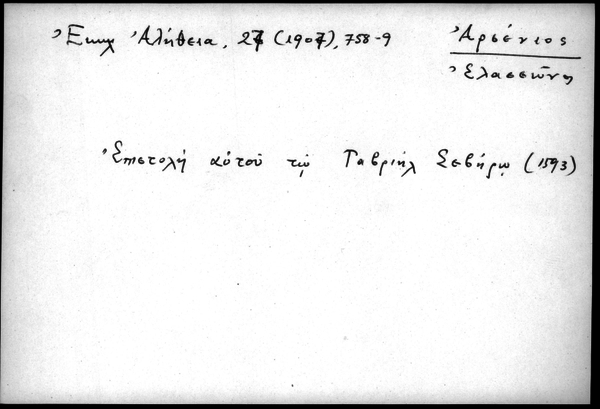 Ἐκκλ Ἀλήθεια, 27 (1907), 758-9
Ἀρσένιος
Ἐλασσῶνος
Ἐπιστολή αὐτοῦ τῷ Γαβριήλ Σεβήρῳ (1593)